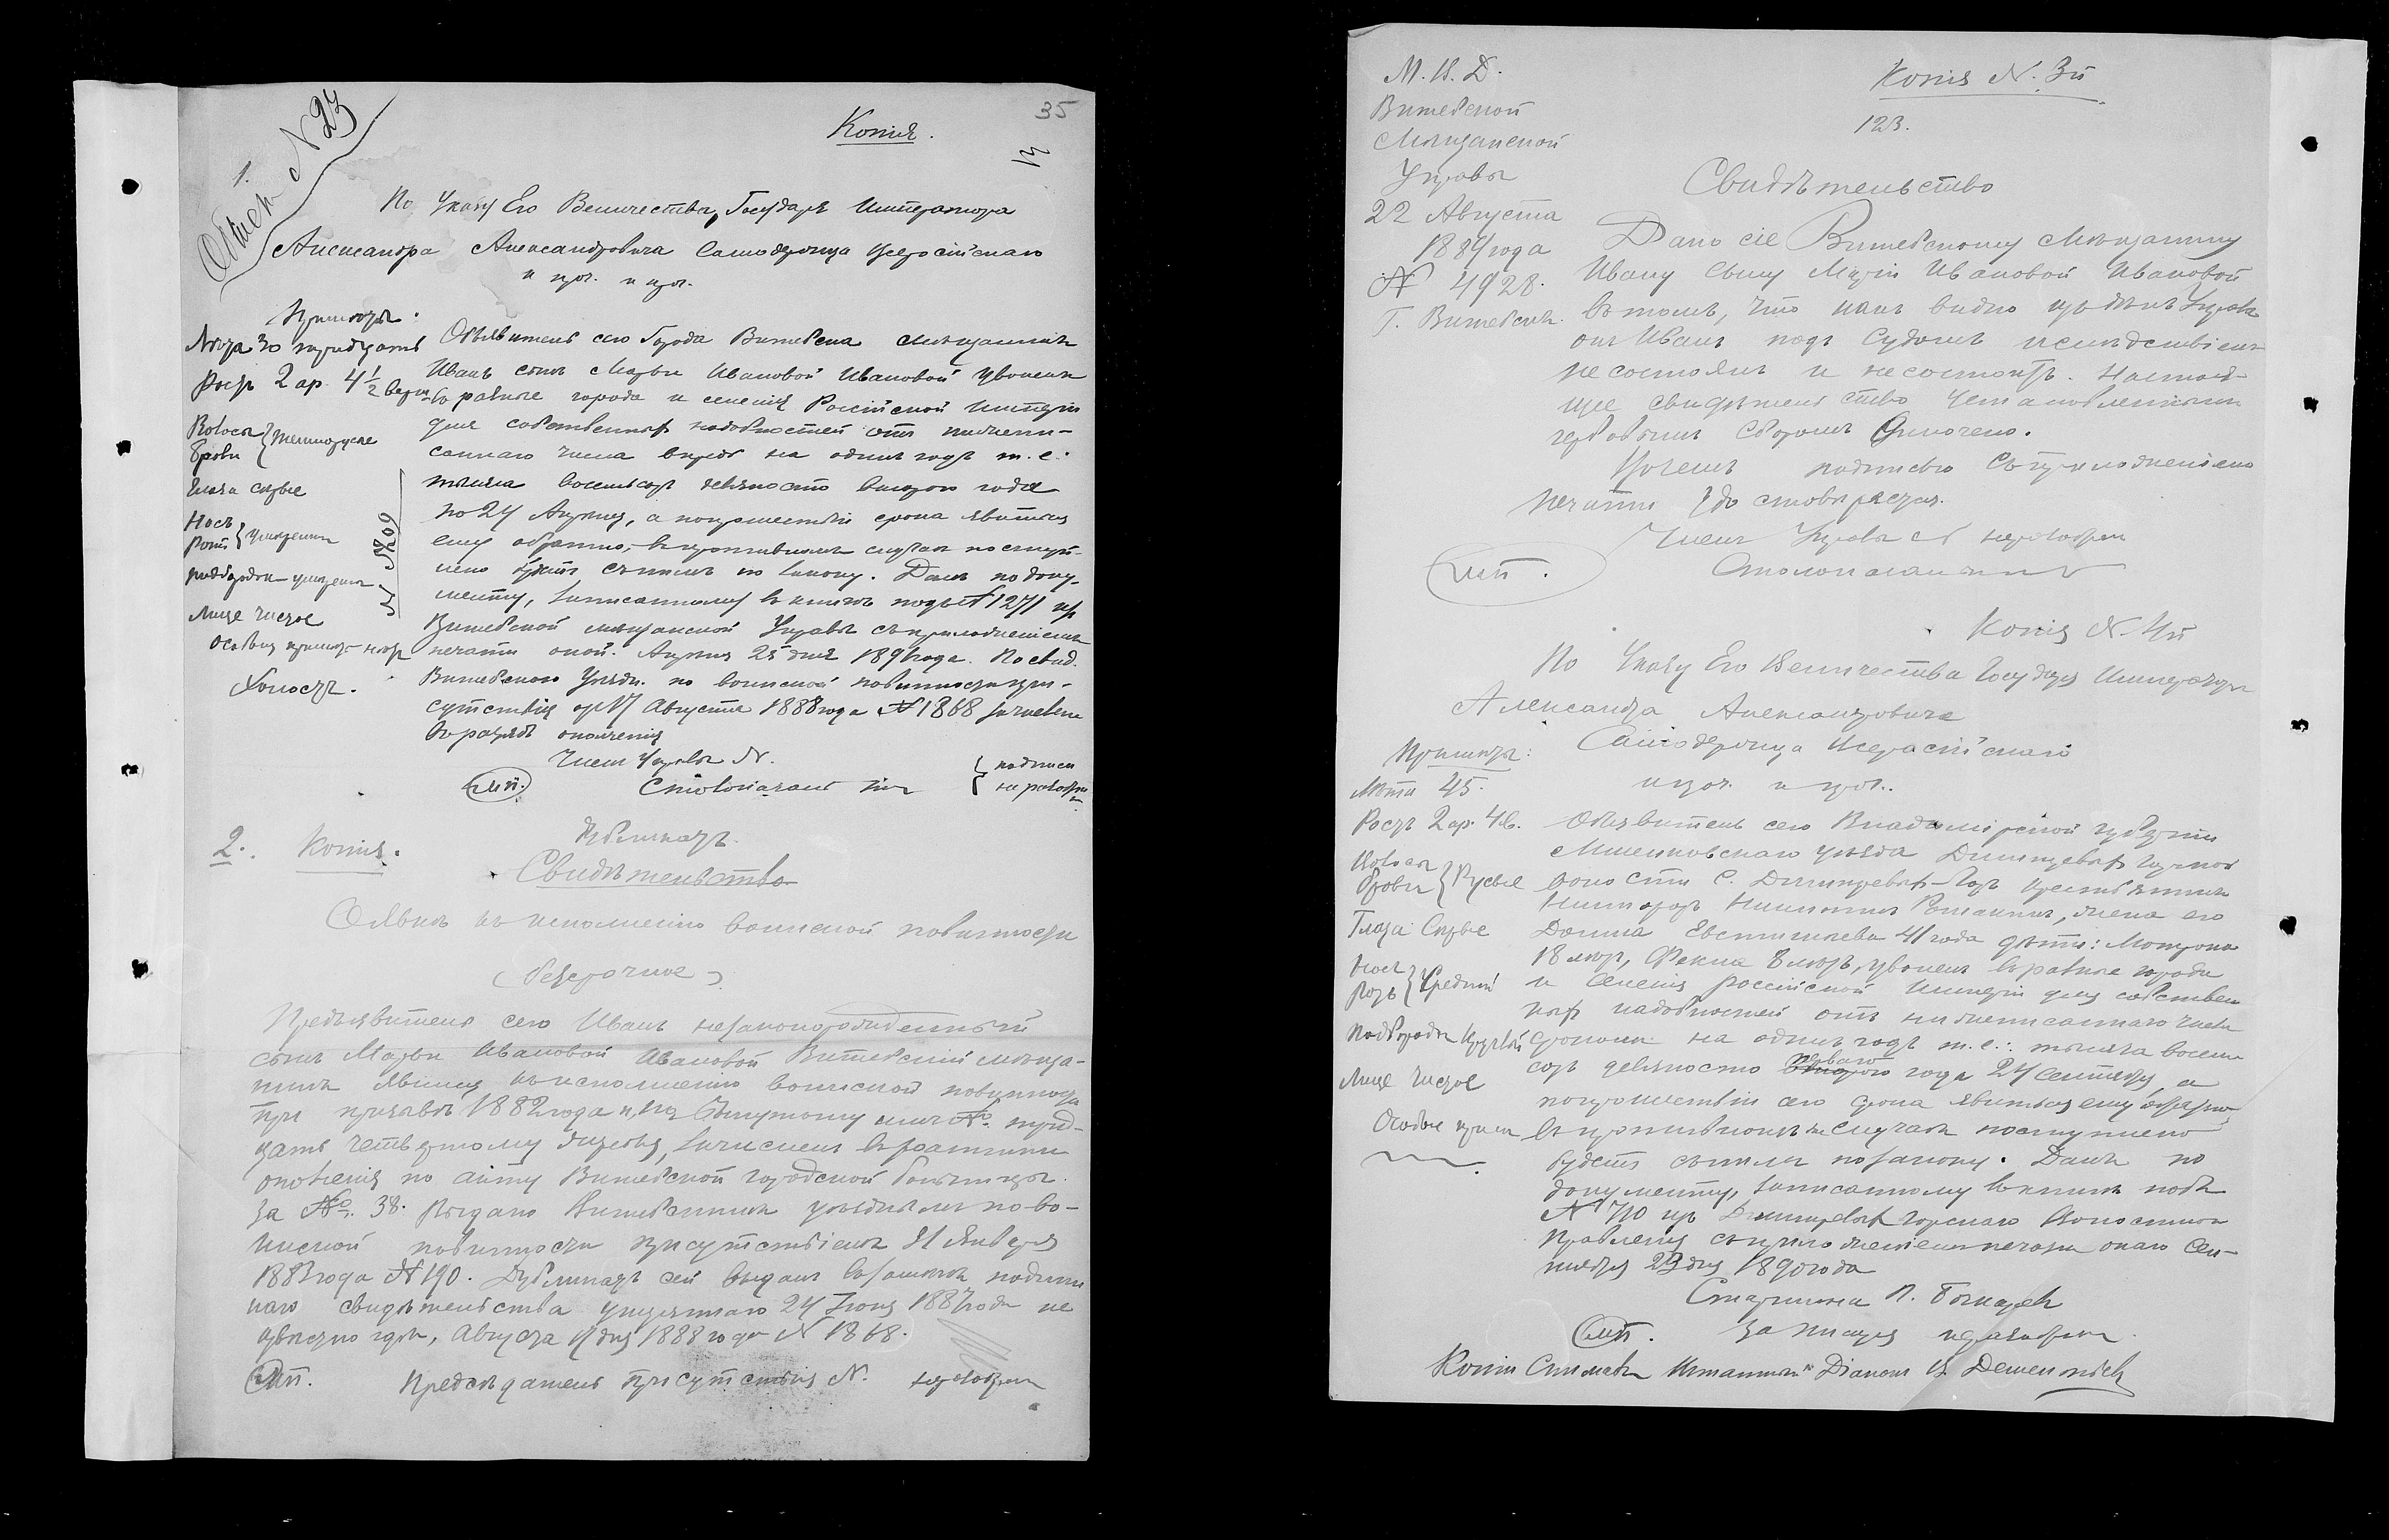 35
Копія.
1.
По Указу Его Величества, Государя Императора
Александра Александровича Самодержца Всероссійскаго
и проч. и проч.
Приметы.
Лета 30 тридцать
Ростъ 2 ар. 4 1/2 верш.
Волоса
брови } темнорусые
Глаза серые
Носъ
Ротъ } умеренны
подбородокъ умеренъ
Лице чистое
Особыя приметы нетъ
Холостъ.
Объявитель сего Города Витебска мещанинъ
Иванъ сынъ Марьи Ивановой Ивановой уволенъ
въ разные города и селенія Россійской Имперіи
для собственныхъ надобностей отъ нижепи-
саннаго числа впредь на одинъ годъ т. е.
тысяча восемьсотъ девяносто втораго года
по 24 Апреля, а попрошествіи срока явиться
ему обратно, въ противномъ случае поступ-
лено будетъ съ нимъ по закону. Данъ по доку-
менту, записанному въ книгѣ подъ № 1271 изъ
Витебской мещанской Управы съ приложеніемъ
печати оной. Апреля 25 дня 1891 года. По свид.
Витебскаго Уездн. по воинской повинности при-
сутствія отъ 17 Августа 1888 года № 1868 зачисленъ
въ разрядъ ополченія
Членъ Управы N.
М.П. Столоначальникъ
{ подписи
неразборч.
2. Копія.
Дубликатъ.
Свидѣтельство
О явкѣ къ исполненію воинской повинности
(безсрочное)
Предъявитель сего Иванъ незаконорожденный
сынъ Марьи Ивановой Ивановой Витебскій меща-
нинъ явился къ исполненію воинской повинности
при призывѣ 1882 года и, по вынутому имъ №. трид-
цать четвертому жеребья, зачисленъ въ ратники
ополченія по акту Витебской городской больницы
за №. 38. Выдано Витебскимъ уезднымъ по во-
инской повинности присутствіемъ 31 Января
1883 года № 190. Дубликатъ сей выданъ взаменъ подлин
наго свидѣтельства утеряннаго 24 Іюня 1887 года не
известно где, Августа 17 дня 1888 года № 1868.
М.П. Председатель присутствія N. неразборчиво
М. В. Д.
Витебской
Мещанской
Управы
22 Августа
1889 года
№ 4928.
Г. Витебскъ.
Копія N. 3й
123.
Свидѣтельство
Дано сіе Витебскому мещанину
Ивану сыну Маріи Ивановой Ивановой
въ томъ, что какъ видно изъ делъ Управы
онъ Иванъ подъ судомъ и следствіемъ
не состоялъ и не состоитъ. Настоя-
щее свидетельство установленнымъ
гербовымъ сборомъ оплочено.
въ чемъ подписью съ приложеніемъ
печати удостоверяетъ.
Членъ Управы N неразборч.
М.П. Столоначальникъ
Копія N. 4й
По Указу Его Величества Государя Императора
Александра Александровича
Самодержца Всероссійскаго
и проч. и проч.
Приметы:
Лета 45.
Ростъ 2 ар. 4 в.
Волоса
брови } Русые
Глаза Серые
Носъ
Ротъ } Средній
Подбородокъ Круглый
Лице чистое
Особые приметы
Объявитель сего Владимірской губерніи
волости С. Крестьянинъ
Никифоръ Никитинъ, жена его
Домна 41 года дети: Матрона
18 летъ, Фекла 8 летъ, уволенъ въ разные города
и Селенія Россійской Имперіи для собствен
ныхъ надобностей отъ нижеписаннаго числа
срокомъ на одинъ годъ т. е.: тысяча восемь
сотъ девяносто перваго года 24 Сентября, а
попрошествіи сего срока явиться ему обратно,
въ противномъ же случае поступлено
будетъ съ нимъ по закону. Данъ по
документу, записанному въ книгѣ подъ
№ 710 изъ Волостнаго
Правленія съ приложеніемъ печати онаго Сен-
тября 23 дня 1890 года
Старшина П.
М.П. За писаря неразборч.
Копіи снималъ В. Дементьевъ